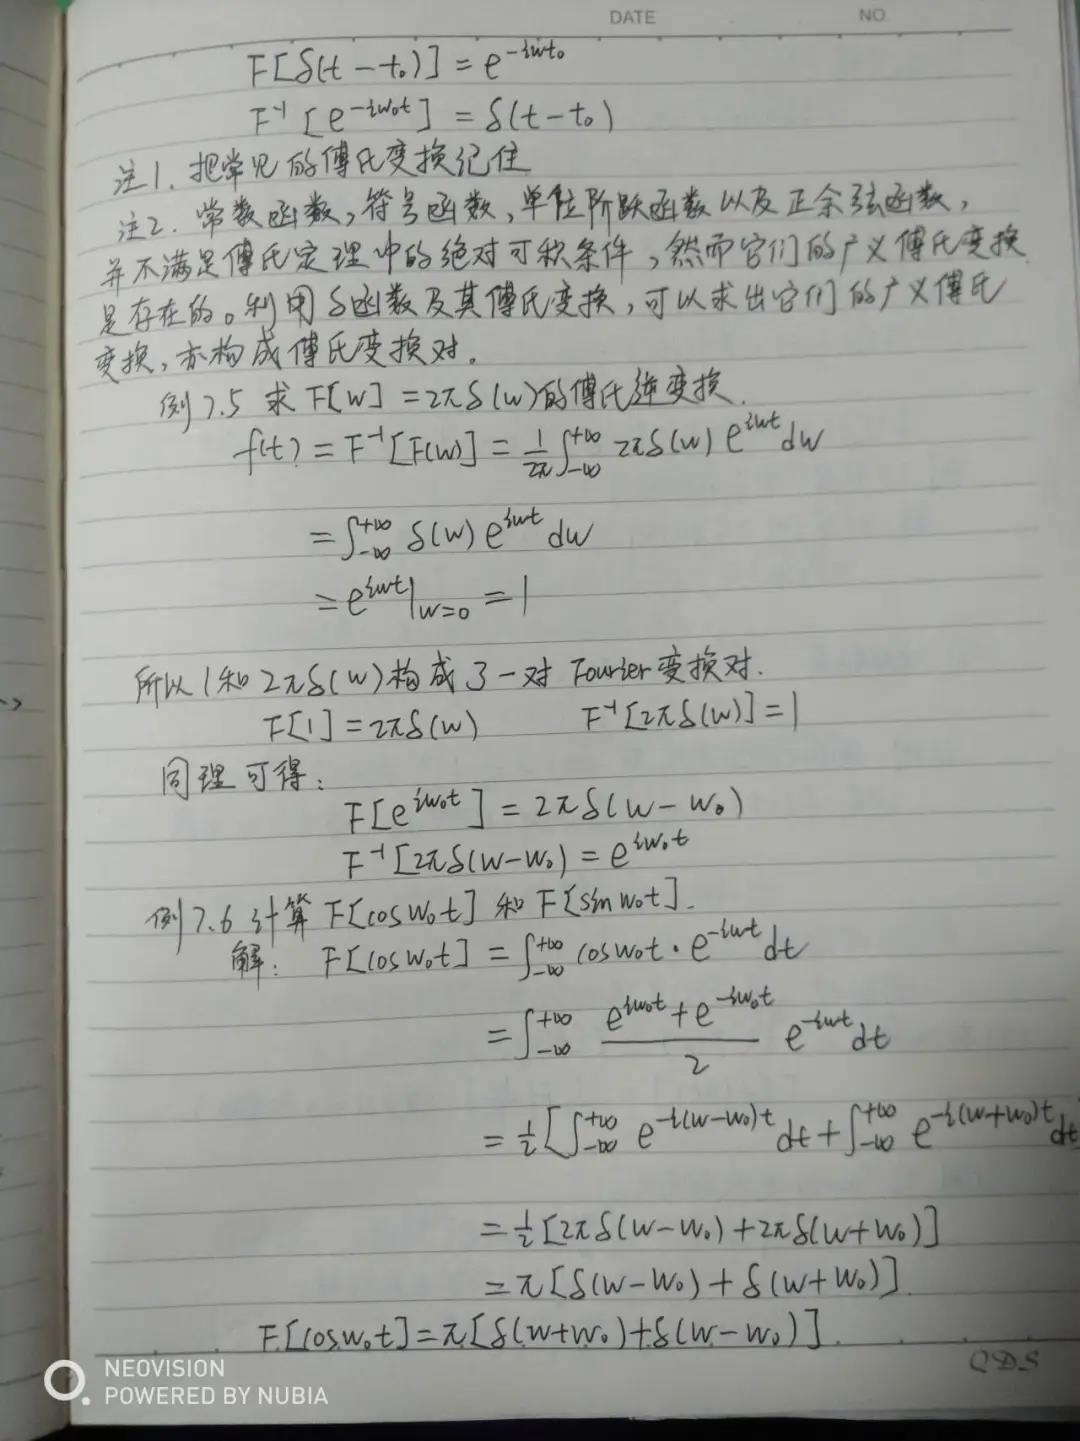 DATE NO
F[δ(t-t₀)] = e^{-iwt₀}
F⁻¹[e^{-iw₀t}] = δ(t-t₀)
注1. 把常见的傅氏变换记住
注2. 常数函数,符号函数,单位阶跃函数以及正余弦函数,
并不满足傅氏定理中的绝对可积条件,然而它们的广义傅氏变换
是存在的。利用δ函数及其傅氏变换,可以求出它们的广义傅氏
变换,亦构成傅氏变换对.
例7.5 求 F[w] = 2πδ(w)的傅氏逆变换.
f(t) = F⁻¹[F(w)] = \frac{1}{2π}∫_{-∞}^{+∞} 2πδ(w) e^{iwt} dw
= ∫_{-∞}^{+∞} δ(w) e^{iwt} dw
= e^{iwt}|_{w=0} = 1
所以1和2πδ(w)构成了一对 Fourier变换对.
F[1] = 2πδ(w) F⁻¹[2πδ(w)] = 1
同理可得:
F[e^{iw₀t}] = 2πδ(w-w₀)
F⁻¹[2πδ(w-w₀) = e^{iw₀t}
例7.6 计算 F[cosw₀t] 和 F[sinw₀t].
解: F[cosw₀t] = ∫_{-∞}^{+∞} cosw₀t · e^{-iwt} dt
= ∫_{-∞}^{+∞} \frac{e^{iw₀t}+e^{-iw₀t}}{2} e^{-iwt} dt
= \frac{1}{2}[∫_{-∞}^{+∞} e^{-i(w-w₀)t} dt + ∫_{-∞}^{+∞} e^{-i(w+w₀)t} dt]
= \frac{1}{2}[2πδ(w-w₀) + 2πδ(w+w₀)]
= π[δ(w-w₀) + δ(w+w₀)].
F[cosw₀t] = π[δ(w+w₀)+δ(w-w₀)].
NEOVISION
POWERED BY NUBIA